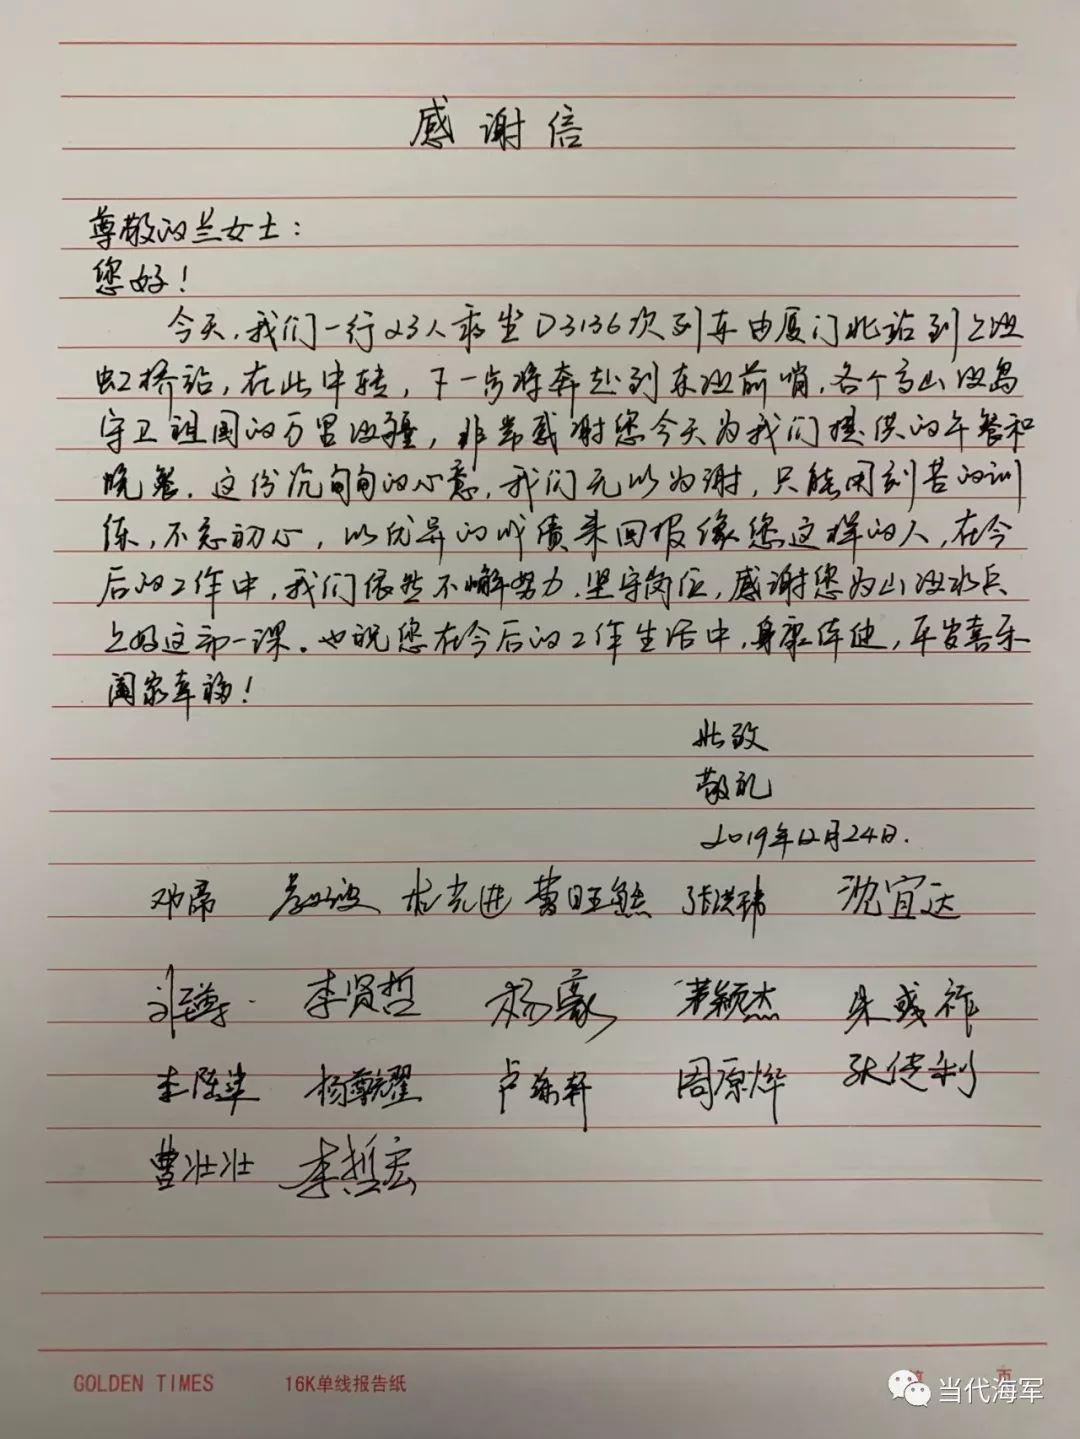 感谢信
尊敬的兰女士：
您好！
今天，我们一行23人乘坐D3136次列车由厦门北站到上海
虹桥站，在此中转，下一步将奔赴到东海前哨，各个高山海岛
守卫祖国的万里海疆，非常感谢您今天为我们提供的午餐和
晚餐，这份沉甸甸的心意，我们无以为谢，只能用刻苦的训
练，不忘初心，以优异的成绩来回报像您这样的人，在今
后的工作中，我们依然不懈努力，坚守岗位，感谢您为山海水兵
上好这第一课。也祝您在今后的工作生活中，身康体健，平安喜乐
阖家幸福！
此致
敬礼
2019年12月24日.
邓席 黄旺熊 张洪玮 沈宜达
李贤哲 杨豪 朱彧祚
杨尊耀 卢泺轩 周原烨
曹壮壮 李哲宏
GOLDEN TIMES 16K单线报告纸 第 页
当代海军